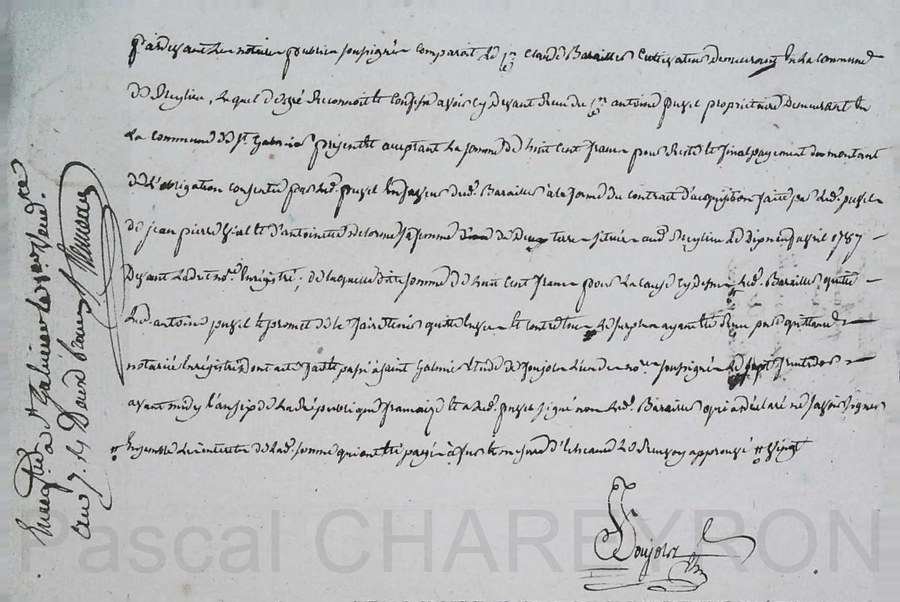 Pardevant le notaire public soussigné comparoit le cn Claude Barailler cultivateur demeurant en la commune
de Meylieu, lequel de gré reconnoit et confesse avoir cy devant reçu du cn antoine puzel propriétaire demeurant en
la commune de st Galmier présent et acceptant la somme de huit cent francs pour reste et final payement du montant
de l'obligation consentie par led. puzel en faveur dud. Barailler à la forme du contrat d'acquisition faite par led. puzel
de jean pierre et d'antoinette delorme sa femme de deux terres situées aud. Meylieu le dix neuf avril 1787
devant led. not.re enregistré; de laquelle ditte somme de huit cent francs pour la cause cy dessus led. Barailler quitte
led. antoine puzel et promet de le faire tenir quitte envers et contre tous, le surplus ayant été reçu par quittance
notariée enregistrée dont acte fait et passé à saint Galmier étude de Ponjolz l'un des no.res soussigné le sept
avant midy l'an six de la république française et a led. puzel signé non led. Barailler qui a déclaré ne savoir signer
ensemble les interets de lad. somme qui ont été payés à fur et mesure d'échéance le renvoy approuvé vingt
Ponjolz
Enregistré à St Galmier le
an 7.